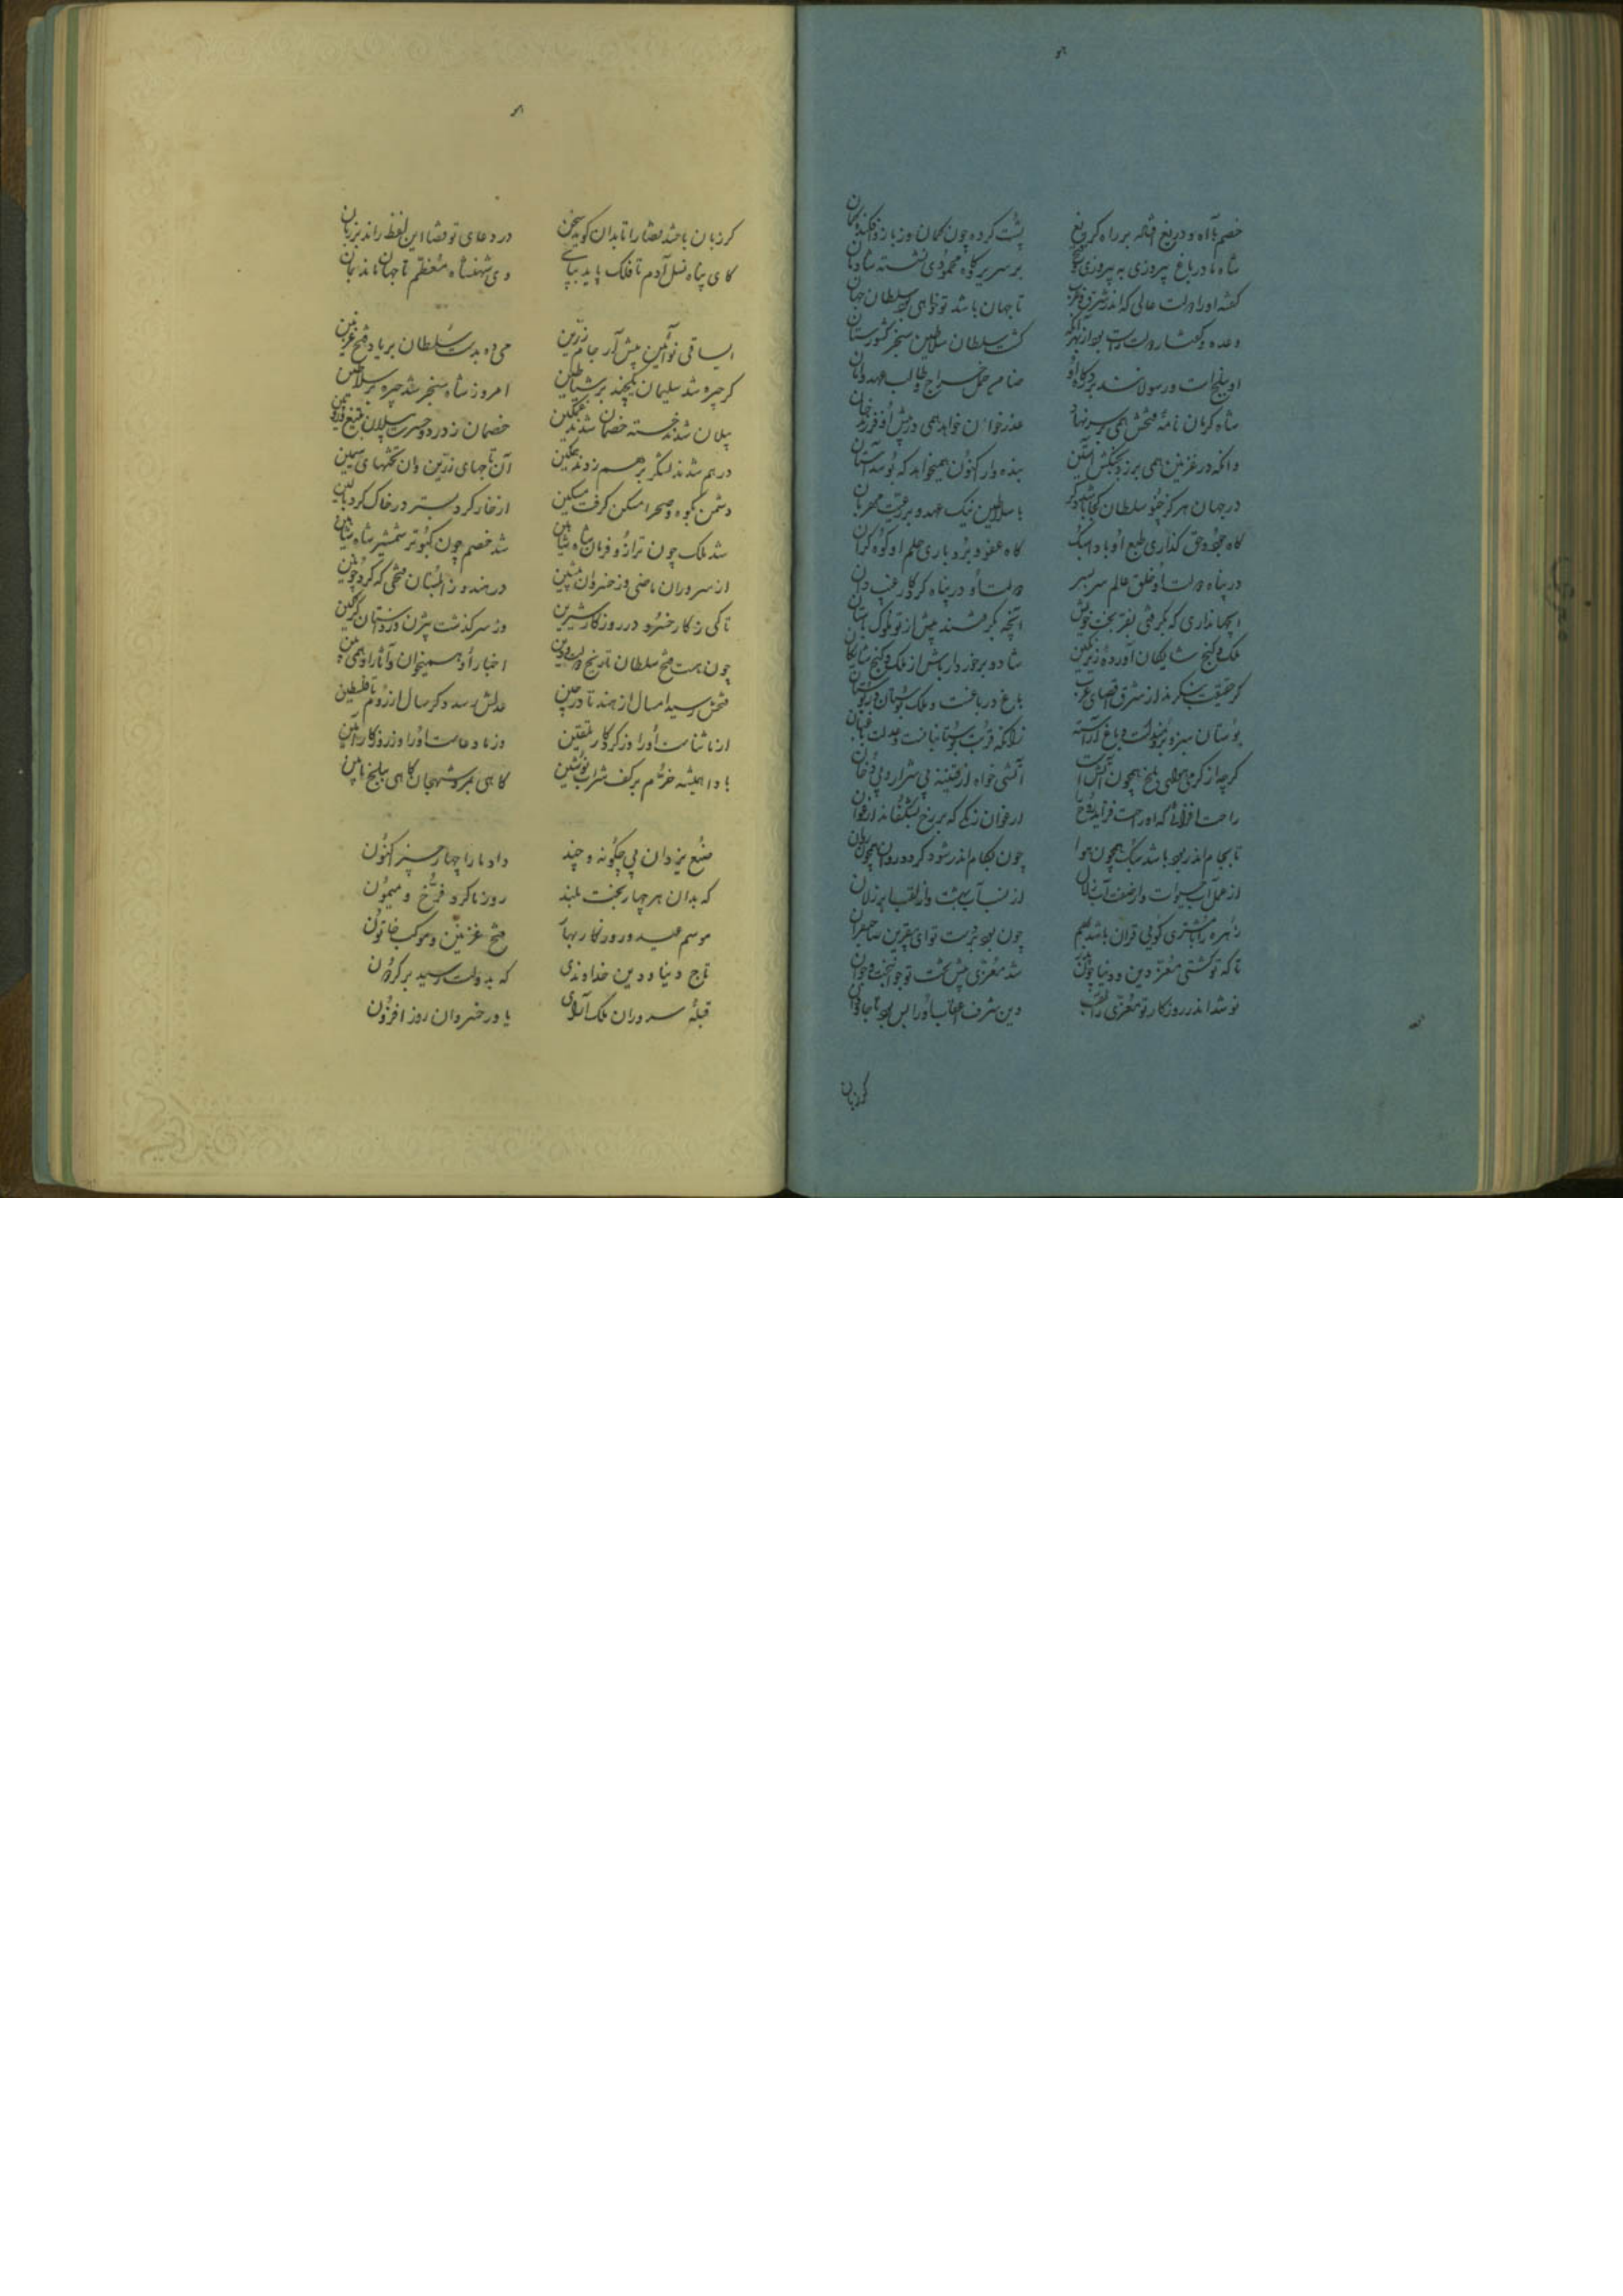 خصم با آه و دریغ افتاده بر راه گریغ پشت کرده چون کمان وز بازو افکنده کمان
شاه ما در باغ پیروزی به پیروزی بر سریر کاوه محمودی نشسته شادمان
گفته او را دولت عالی که اندر شرق و غرب تا جهان باشد تو خواهی بود سلطان جهان
وعده و گفتار دولت راست بود از بهر آنکه گشت سلطان سلاطین سنجر کشورستان
او ببلخ است و رسولانند بر درگاه او ضامن حمل خراج و طالب عهد و امان
شاه کرمان نامه فتحش همی بر سر نهاد عذر خواهی همی در پیش او
وانکه در غزنین همی برزد بجنگش آستین بنده وار اکنون همیخواهد که بوسد آستان
در جهان هرگز چنو سلطان کجا باشد دگر با سلاطین نیک عهد و بر رعیت مهربان
گاه جود و حق گذاری طبع او باد سبک گاه عفو و بردباری حلم او کوه گران
در پناه دولت او خلق عالم سر بسر دولت او در پناه کردگار غیب دان
ای جهانداری که بگرفتی بفر بخت خویش آنچه نگرفتند پیش از تو ملوک باستان
ملک و گنج شایگان آورده زیر نگین شاد و برخوردار باش از ملک و گنج شایگان
گر حقیقت بنگرند از شرق اقصای غرب باغ
بوستان سبزه برومند است و باغ آراسته زانکه
گرچه از گرما همی تلخ همچون آتش است آتشی خواه از قنینه بی شرار و بی دخان
راحت افزائی که او راحت فزاید روح را ارغوان رنگی که بر رخ بشکفاند ارغوان
تا بجام اندر بود باشد سبک همچون هوا چون بکام اندر شود گردد روان همچون روان
از عمل آب حیوات و از صفت آب زلال از نسب آب بهشت و از لقب
زهره را با مشتری گوئی قران باشد بهم چون بود بر دست تو ای بیقرین صاحبقران
تا که تو گشتی معز دین و دنیا چون پدر شد معزی پیش تخت تو جوانبخت و جوان
نو شد اندر روزگار تو معزی را لقب وین شرف اعقاب او را بس بود تا جاودان
گر زبان
گر زبان باشد قضا را تا بدان گوید سخن در دعای تو قضا این لفظ راند بر زبان
کای پناه نسل آدم تا فلک پاید بپای وی شهنشاه معظم تا جهان ماند بمان
ای ساقی نو آئین پیش آر جام زرین می ده بدست سلطان بر یاد فتح غزنین
گر چیره شد سلیمان یکچند بر شیاطین امروز شاه سنجر شد چیره بر سلاطین
پیلان شدند خسته خصمان شدند غمگین خصمان ز درد و حسرت پیلان ز تیغ و زوبین
درهم شدند لشکر برهم زدند آن تاجهای زرین وان تختهای سیمین
دشمن بکوه و صحرا مسکن گرفت مسکین از خار کرد بستر در خاک کرد بالین
شد ملک چون ترازو فرمان شاه شاهین شد خصم چون کبوتر شمشیر شاه شاهین
از سروران ماضی وز خسروان پیشین در هند و زابلستان فتحی که کرد چونین
تا کی ز کار خسرو در روزگار شیرین وز سرگذشت بیژن وز داستان گرگین
چون هست فتح سلطان تاریخ دولت و دین اخبار او همیخوان و آثار او همی بین
فتحش رسید امسال از هند تا در چین عدلش رسد دگر سال از روم تا فلسطین
از ما ثناست او را وز کردگار تلقین وز ما دعاست او را وز روزگار آمین
بادا همیشه خرم بر کف شراب نوشین گاهی بمرو شهجان گاهی ببلخ بامین
صنع یزدان بی چگونه و چند داد ما را چهار چیز کنون
که بدان هر چهار بخت بلند روز ما کرد فرخ و میمون
موسم عید و روزگار بهار فتح غزنین و موکب خاتون
تاج دنیا و دین خداوندی که بدولت رسید بر گردون
قبله سروران ملک آرای یاور خسروان روز افزون